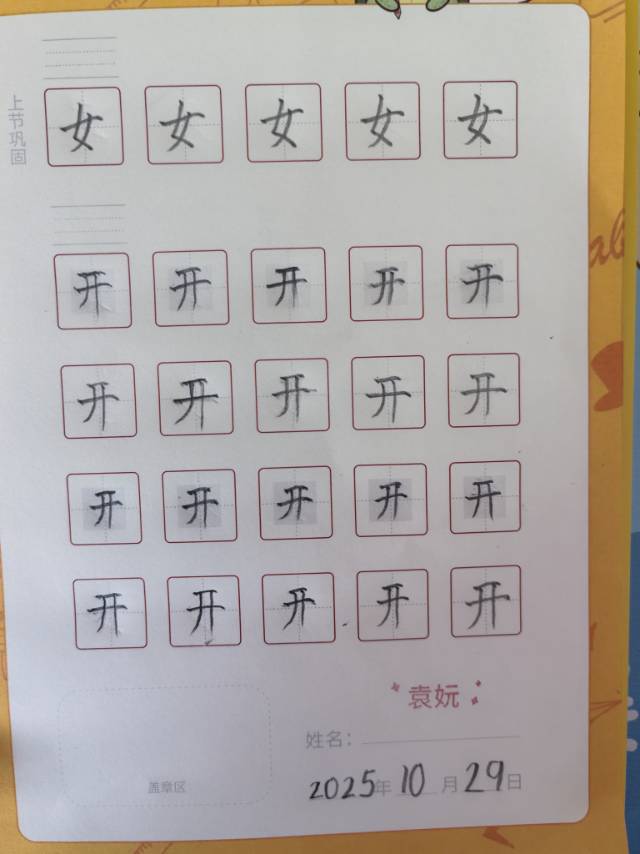 上节巩固
女 女 女 女 女
开 开 开 开 开
开 开 开 开 开
开 开 开 开 开
开 开 开 开 开
袁妧
姓名：
盖章区
2025年 10 月 29日